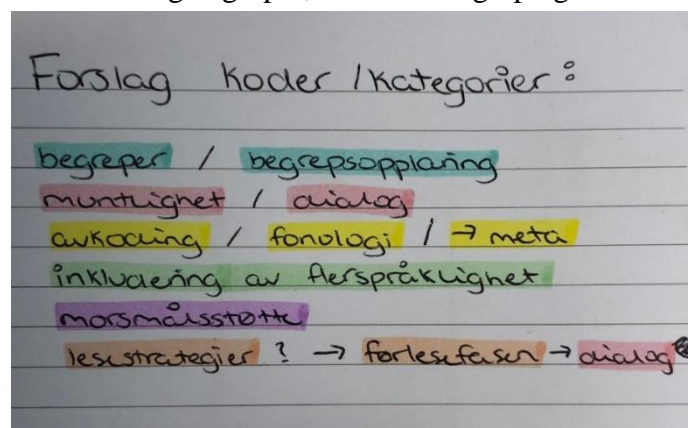 Forslag koder / kategorier :
begreper / begrepsopplæring
muntlighet / dialog
avkoding / fonologi / → meta
inkludering av flerspråklighet
morsmålsstøtte
lesestrategier ? → førlesefasen → dialog